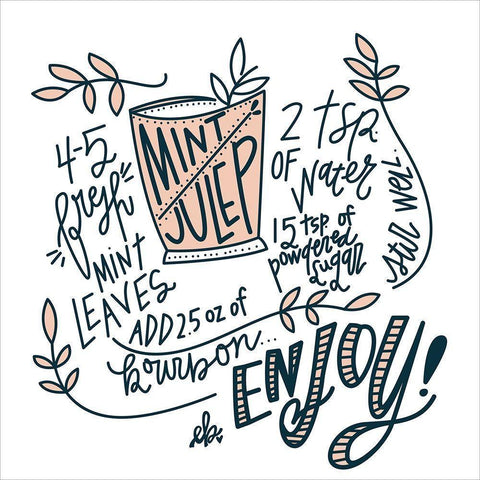 MINT
JULEP
4-5
fresh
MINT
LEAVES
2 tsp.
OF
water
15 tsp. of
powdered
sugar
Stir well...
ADD 2.5 oz of
bourbon...
ENJOY!
eb.